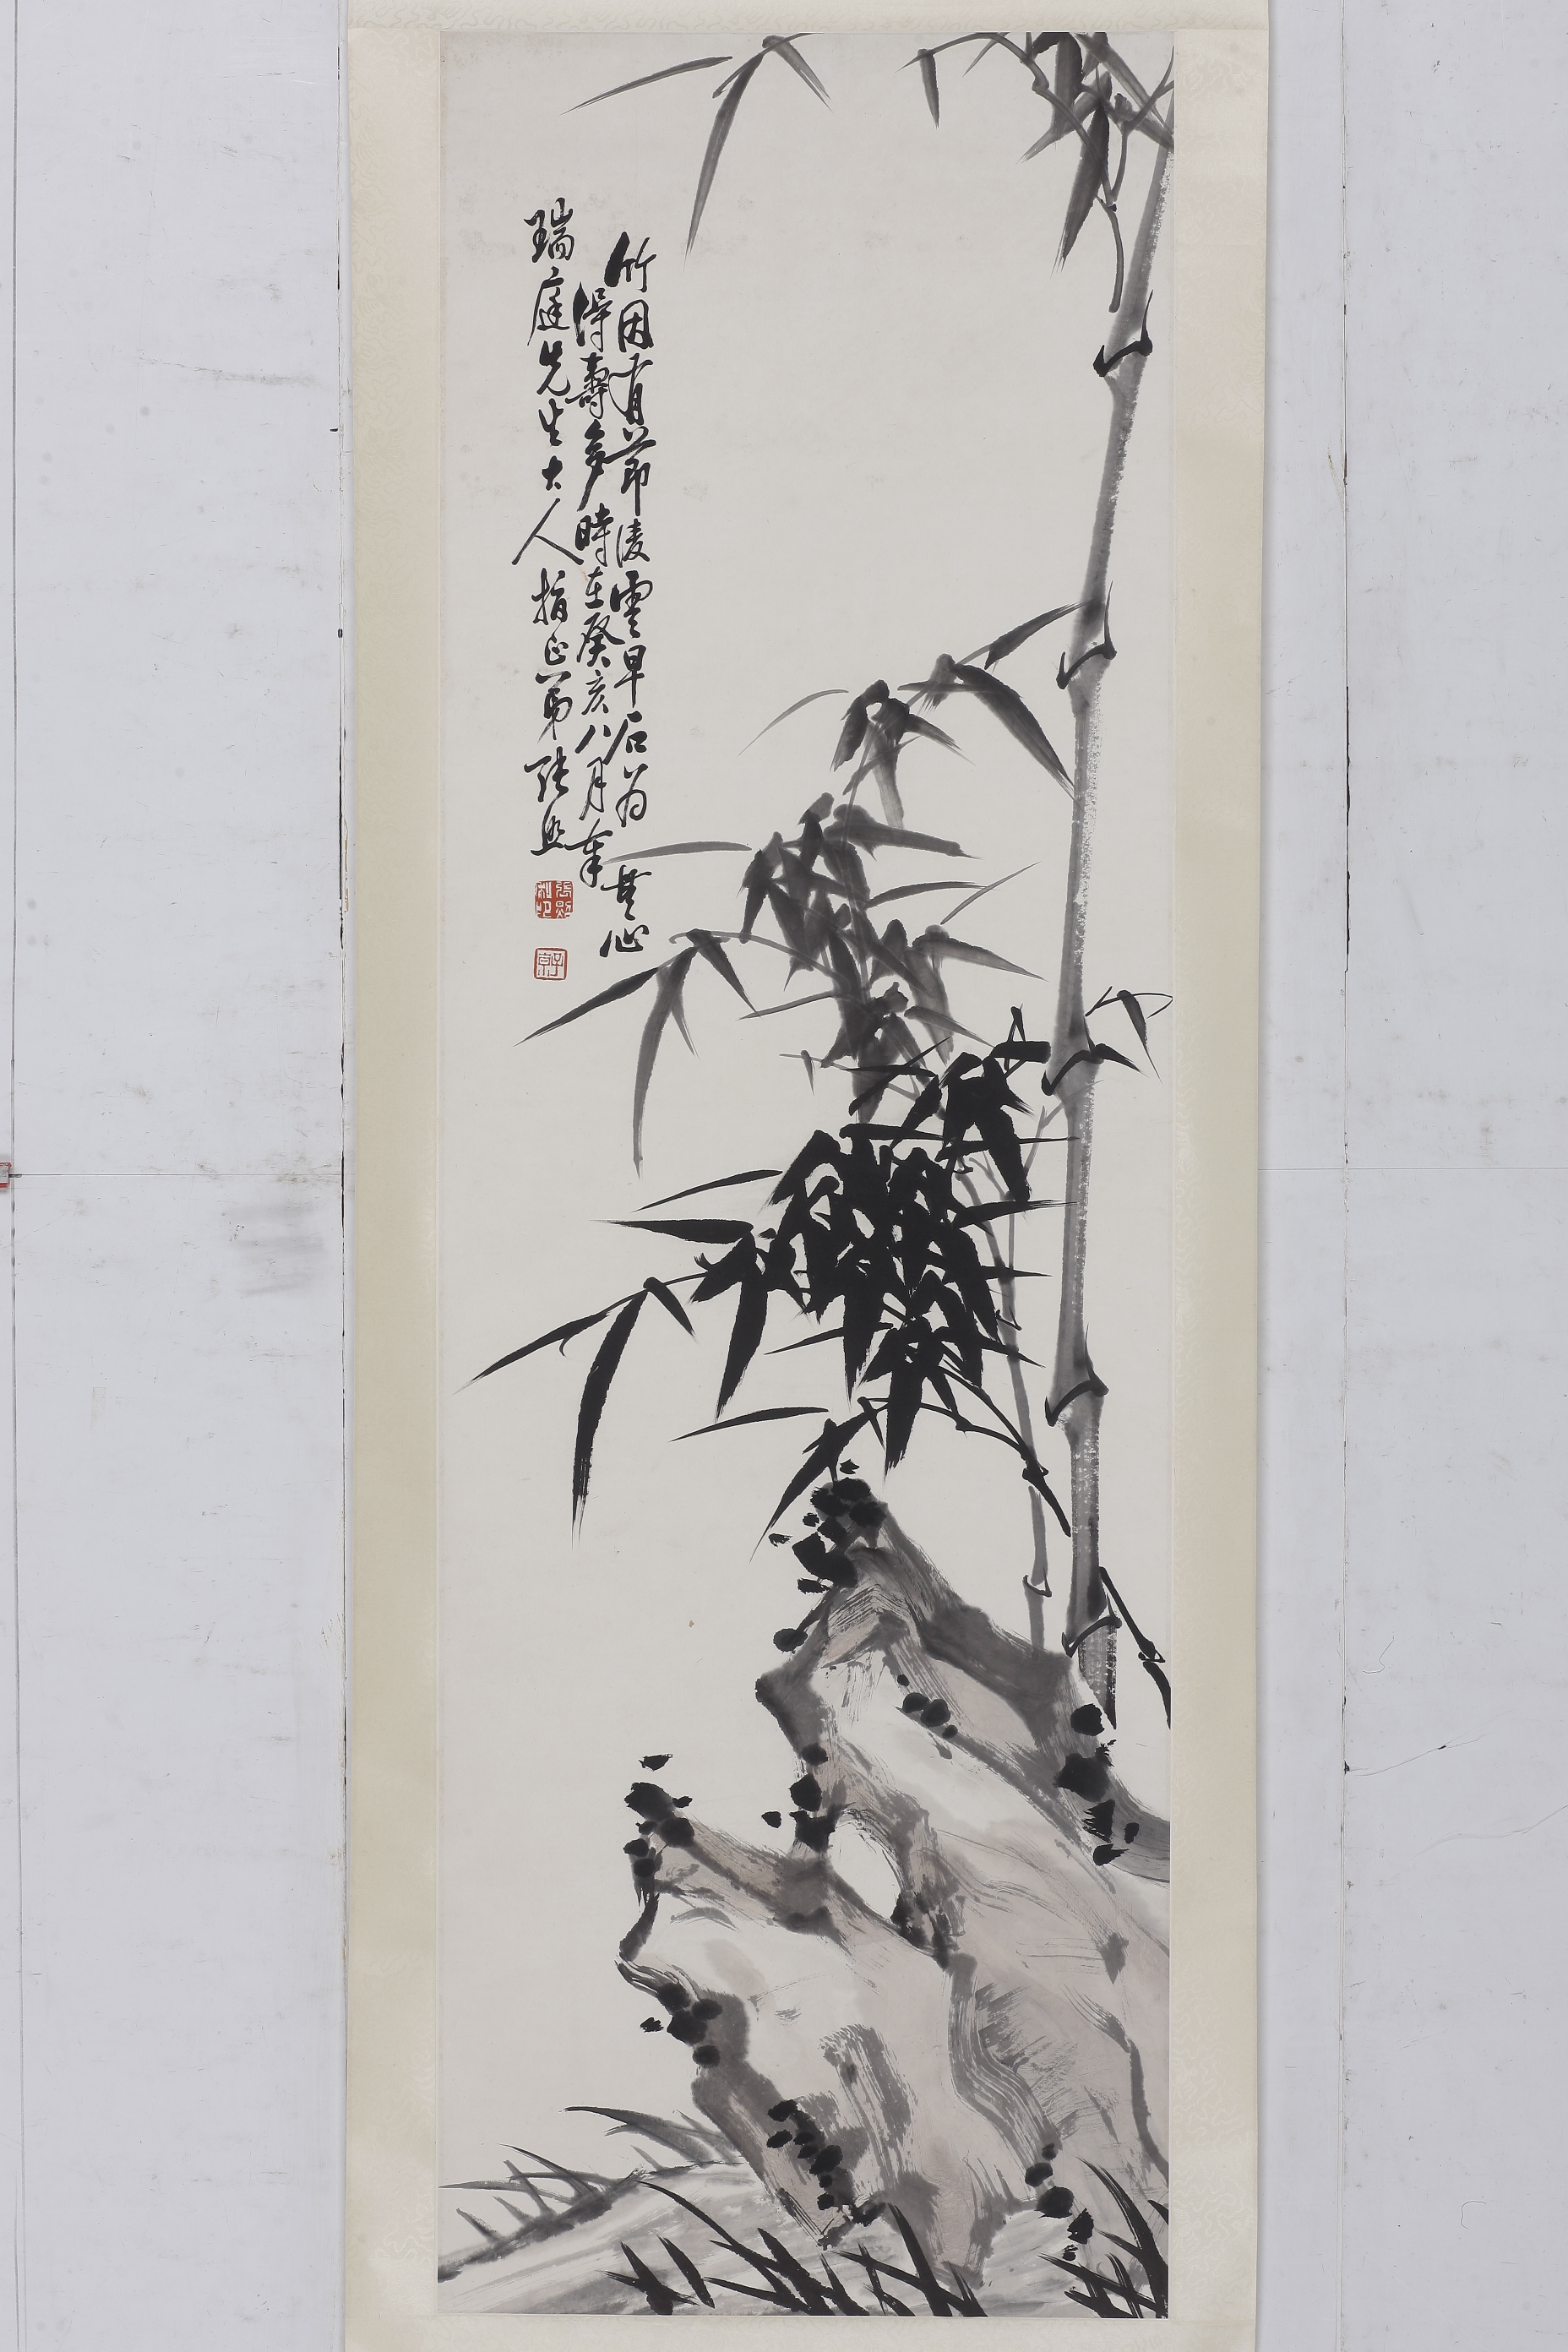 竹因有節凌雲早石為無心
得壽多時在癸亥八月奉
瑞庭先生大人指正弟張
子京